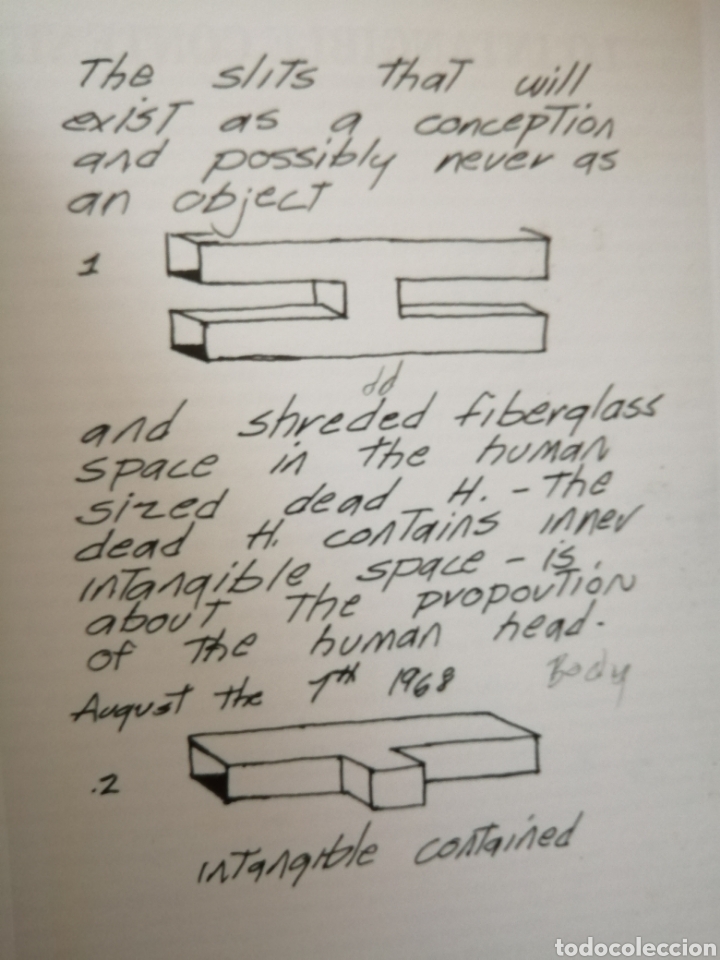 The slits that will
exist as a conception
and possibly never as
an object
1
dd
and shreded fiberglass
space in the human
sized dead H. - The
dead H. contains inner
intangible space - is
about the propoution
of the human head.
Body
August the 7th 1968
.2
intangible contained
todocoleccion